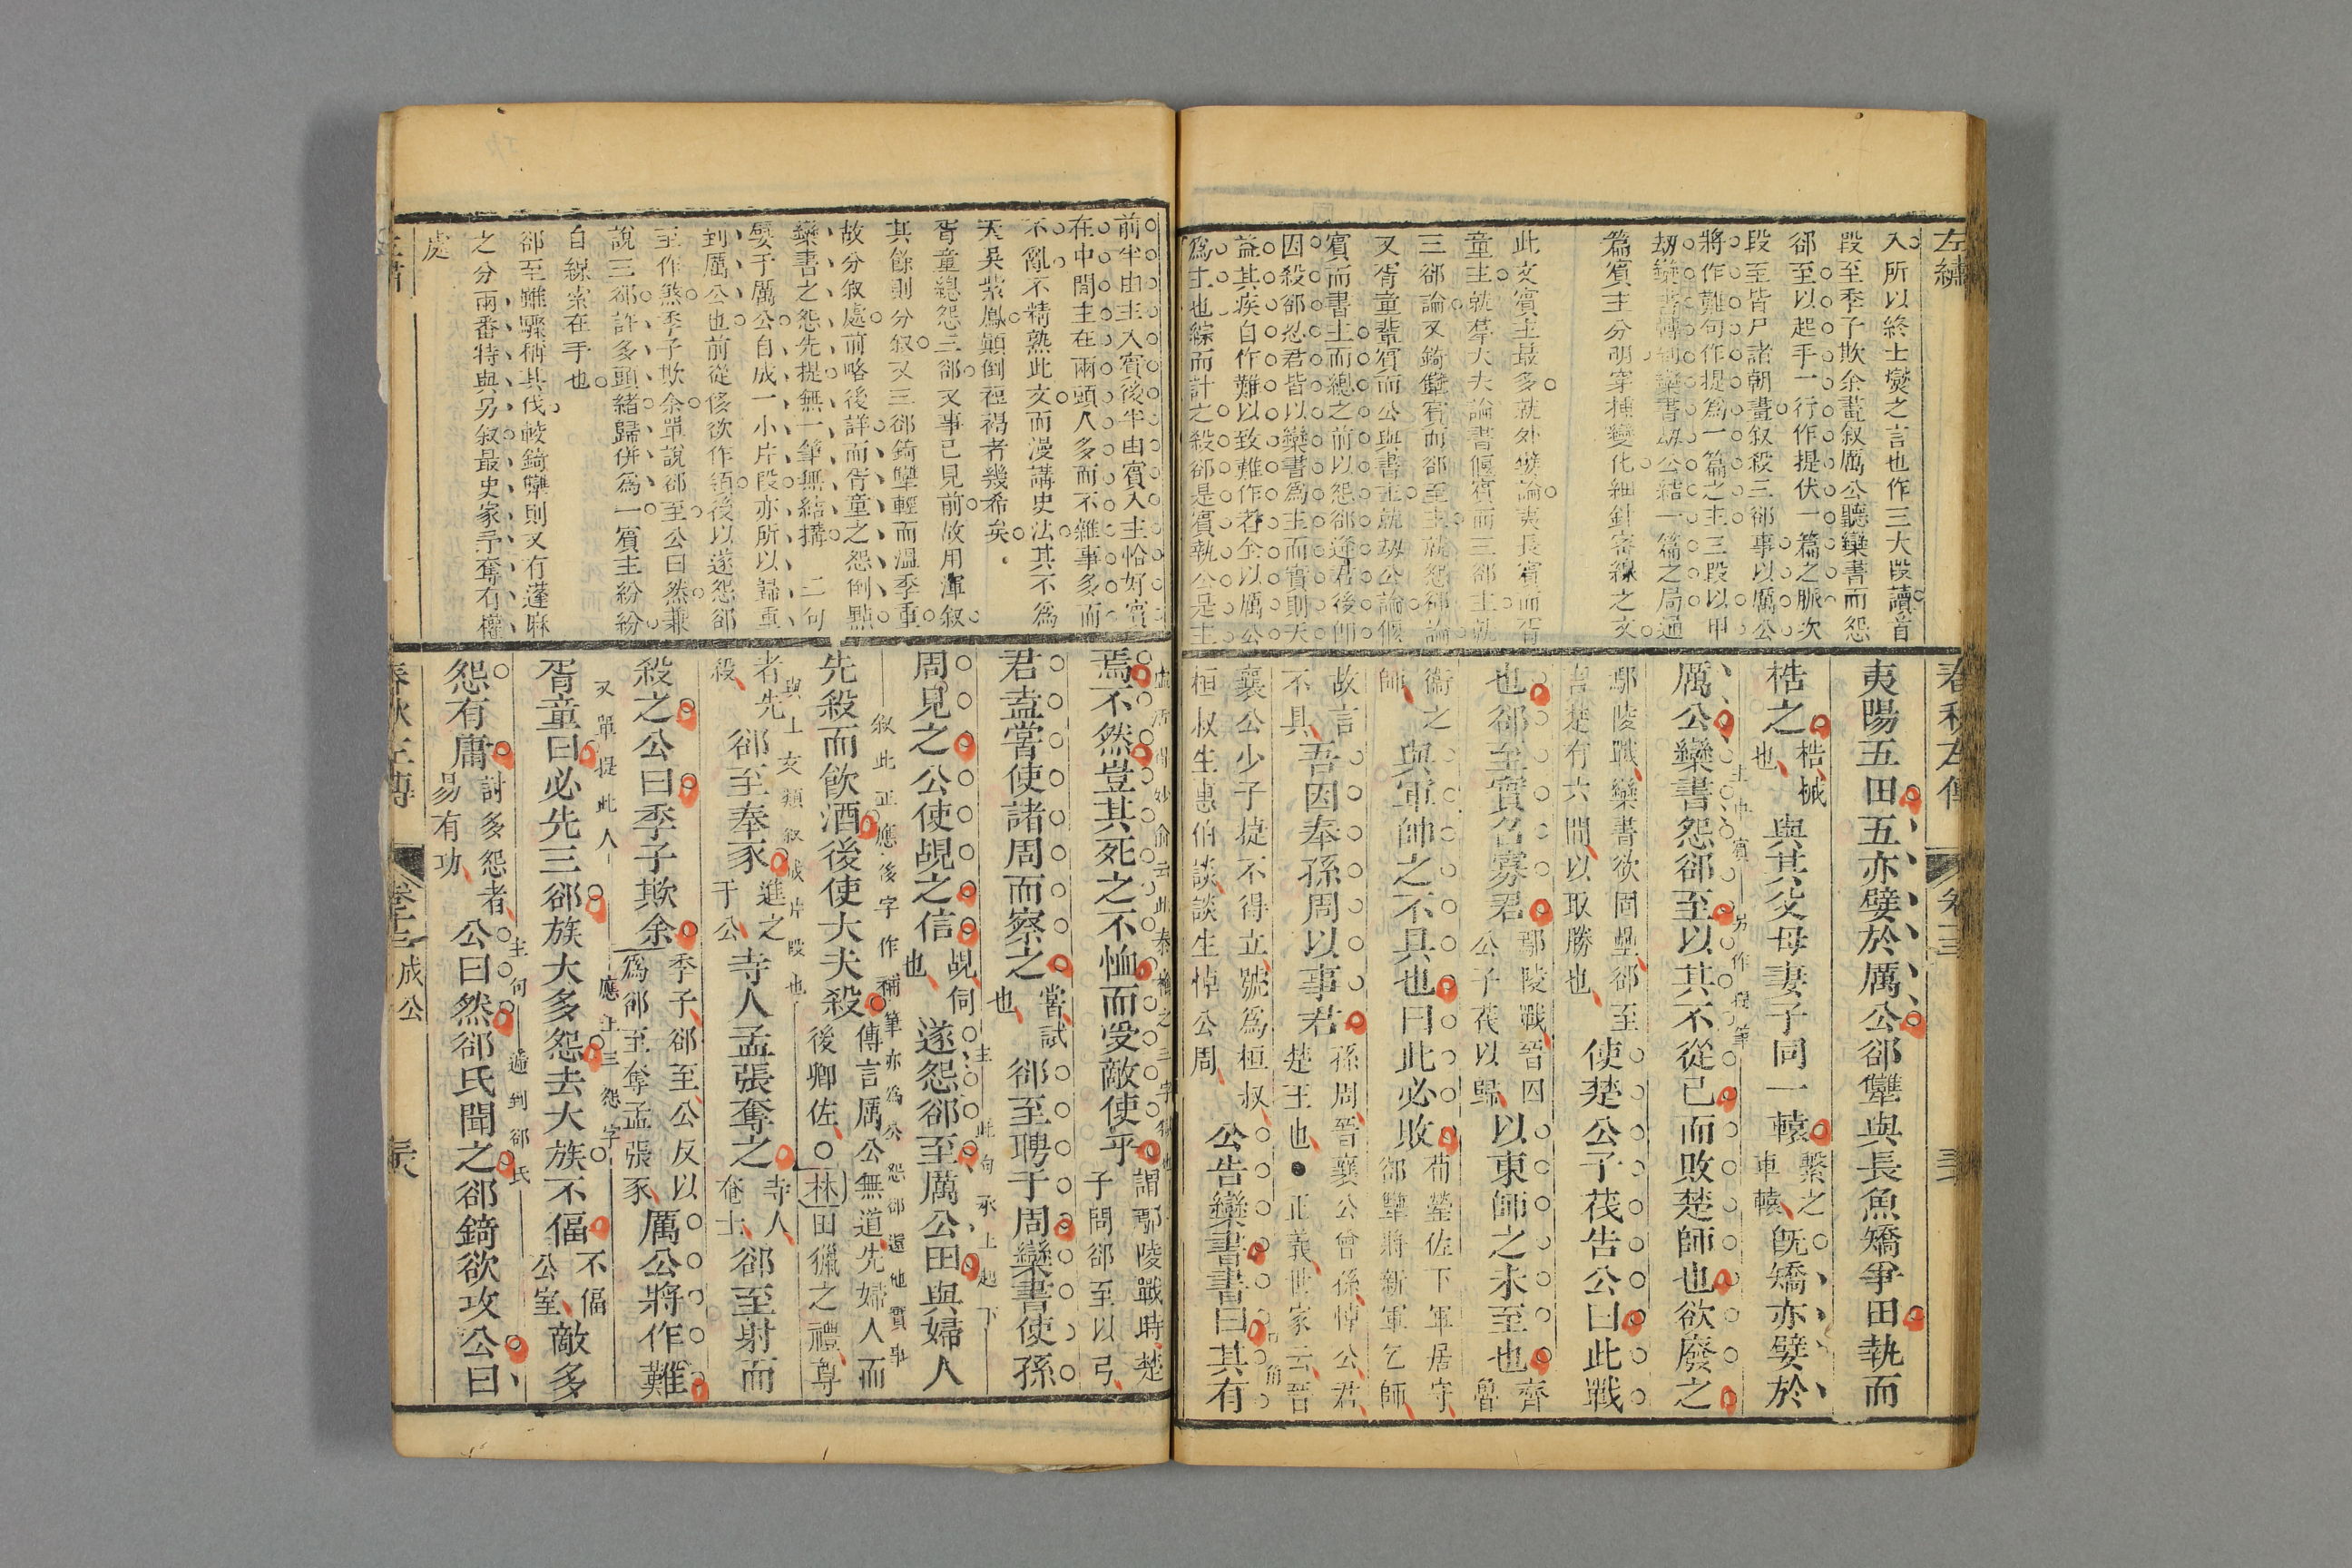 左繡
入所以終士燮之言也作三大段讀首
段至季子欺余畫叙厲公聽欒書而怨
郤至以起手一行作提伏一篇之脈次
段至皆尸諸朝畫叙殺三郤事以厲公
將作難句作提爲一篇之主三段以甲
劫欒書轉到欒書劫公結一篇之局通
篇賓主分明穿插變化細針密線之文
此文賓主最多就外嬖論夷長賓而胥
童主就羣大夫論書偃賓而三郤主就
三郤論又錡犨賓而郤至主就怨郤論
又胥童輩賓而公與書主就劫公論偃
賓而書主而總之前以怨郤逆君後師
因殺郤怨君皆以欒書爲主而實則天
益其疾自作難以致難作者全以厲公
爲主也綜而計之殺郤是賓執公是主
春秋左傳
卷十三
夷陽五田五亦嬖於厲公郤犨與長魚矯爭田執而
梏之
梏械
也
與其父母妻子同一轅
繫之
車轅
既矯亦嬖於
主中賓
另作提筆
厲公欒書怨郤至以其不從己而敗楚師也欲廢之
鄢陵戰欒書欲固壘郤至
言楚有六間以取勝也
使楚公子茷告公曰此戰
也郤至實召寡君
鄢陵戰晉囚
公子茷以歸
以東師之未至也
齊
魯
衞之
師
與軍帥之不具也曰此必敗
荀罃佐下軍居守
郤犨將新軍乞師
故言
不具
吾因奉孫周以事君
孫周晉襄公曾孫悼公君
楚王也●正義世家云晉
襄公少子捷不得立號爲桓叔
桓叔生惠伯談談生悼公周
公告欒書書曰其有
前半由主入賓後半由賓入主恰好賓
在中間主在兩頭人多而不雜事多而
不亂不精熟此文而漫講史法其不爲
天吳紫鳳顛倒裋褐者幾希矣
胥童總怨三郤又事已見前故用渾叙
其餘則分叙又三郤錡犨輕而溫季重
故分叙處前略後詳而胥童之怨倒點
欒書之怨先提無一筆無結搆 二句
嬖于厲公自成一小片段亦所以歸重
到厲公也前從侈欲作領後以遂怨郤
至作煞季子欺余單說郤至公曰然兼
說三郤許多頭緒歸併爲一賓主紛紛
自線索在手也
郤至雖驟稱其伐較錡犨則又有蓬麻
之分兩番特與另叙最史家予奪有權
處
焉不然豈其死之不恤而受敵使乎
謂鄢陵戰時楚
子問郤至以弓
君盍嘗使諸周而察之
嘗試
也
郤至聘于周欒書使孫
周見之公使覘之信
覘伺
也
主
此句承上起下
遂怨郤至厲公田與婦人
叙此正應後字作補筆亦爲公怨郤還他實事
先殺而飲酒後使大夫殺
傳言厲公無道先婦人而
後卿佐○林田獵之禮尊
者先
殺
與上文類叙成片段也
郤至奉豕
進之
于公
寺人孟張奪之
寺人
奄士
郤至射而
殺之公曰季子欺余
季子郤至公反以
爲郤至奪孟張豕
厲公將作難
又單提此人
應上三怨字
胥童曰必先三郤族大多怨去大族不偪
不偪
公室
敵多
怨有庸
討多怨者
易有功
主句
遞到郤氏
公曰然郤氏聞之郤錡欲攻公曰
春秋左傳
卷十三 成公